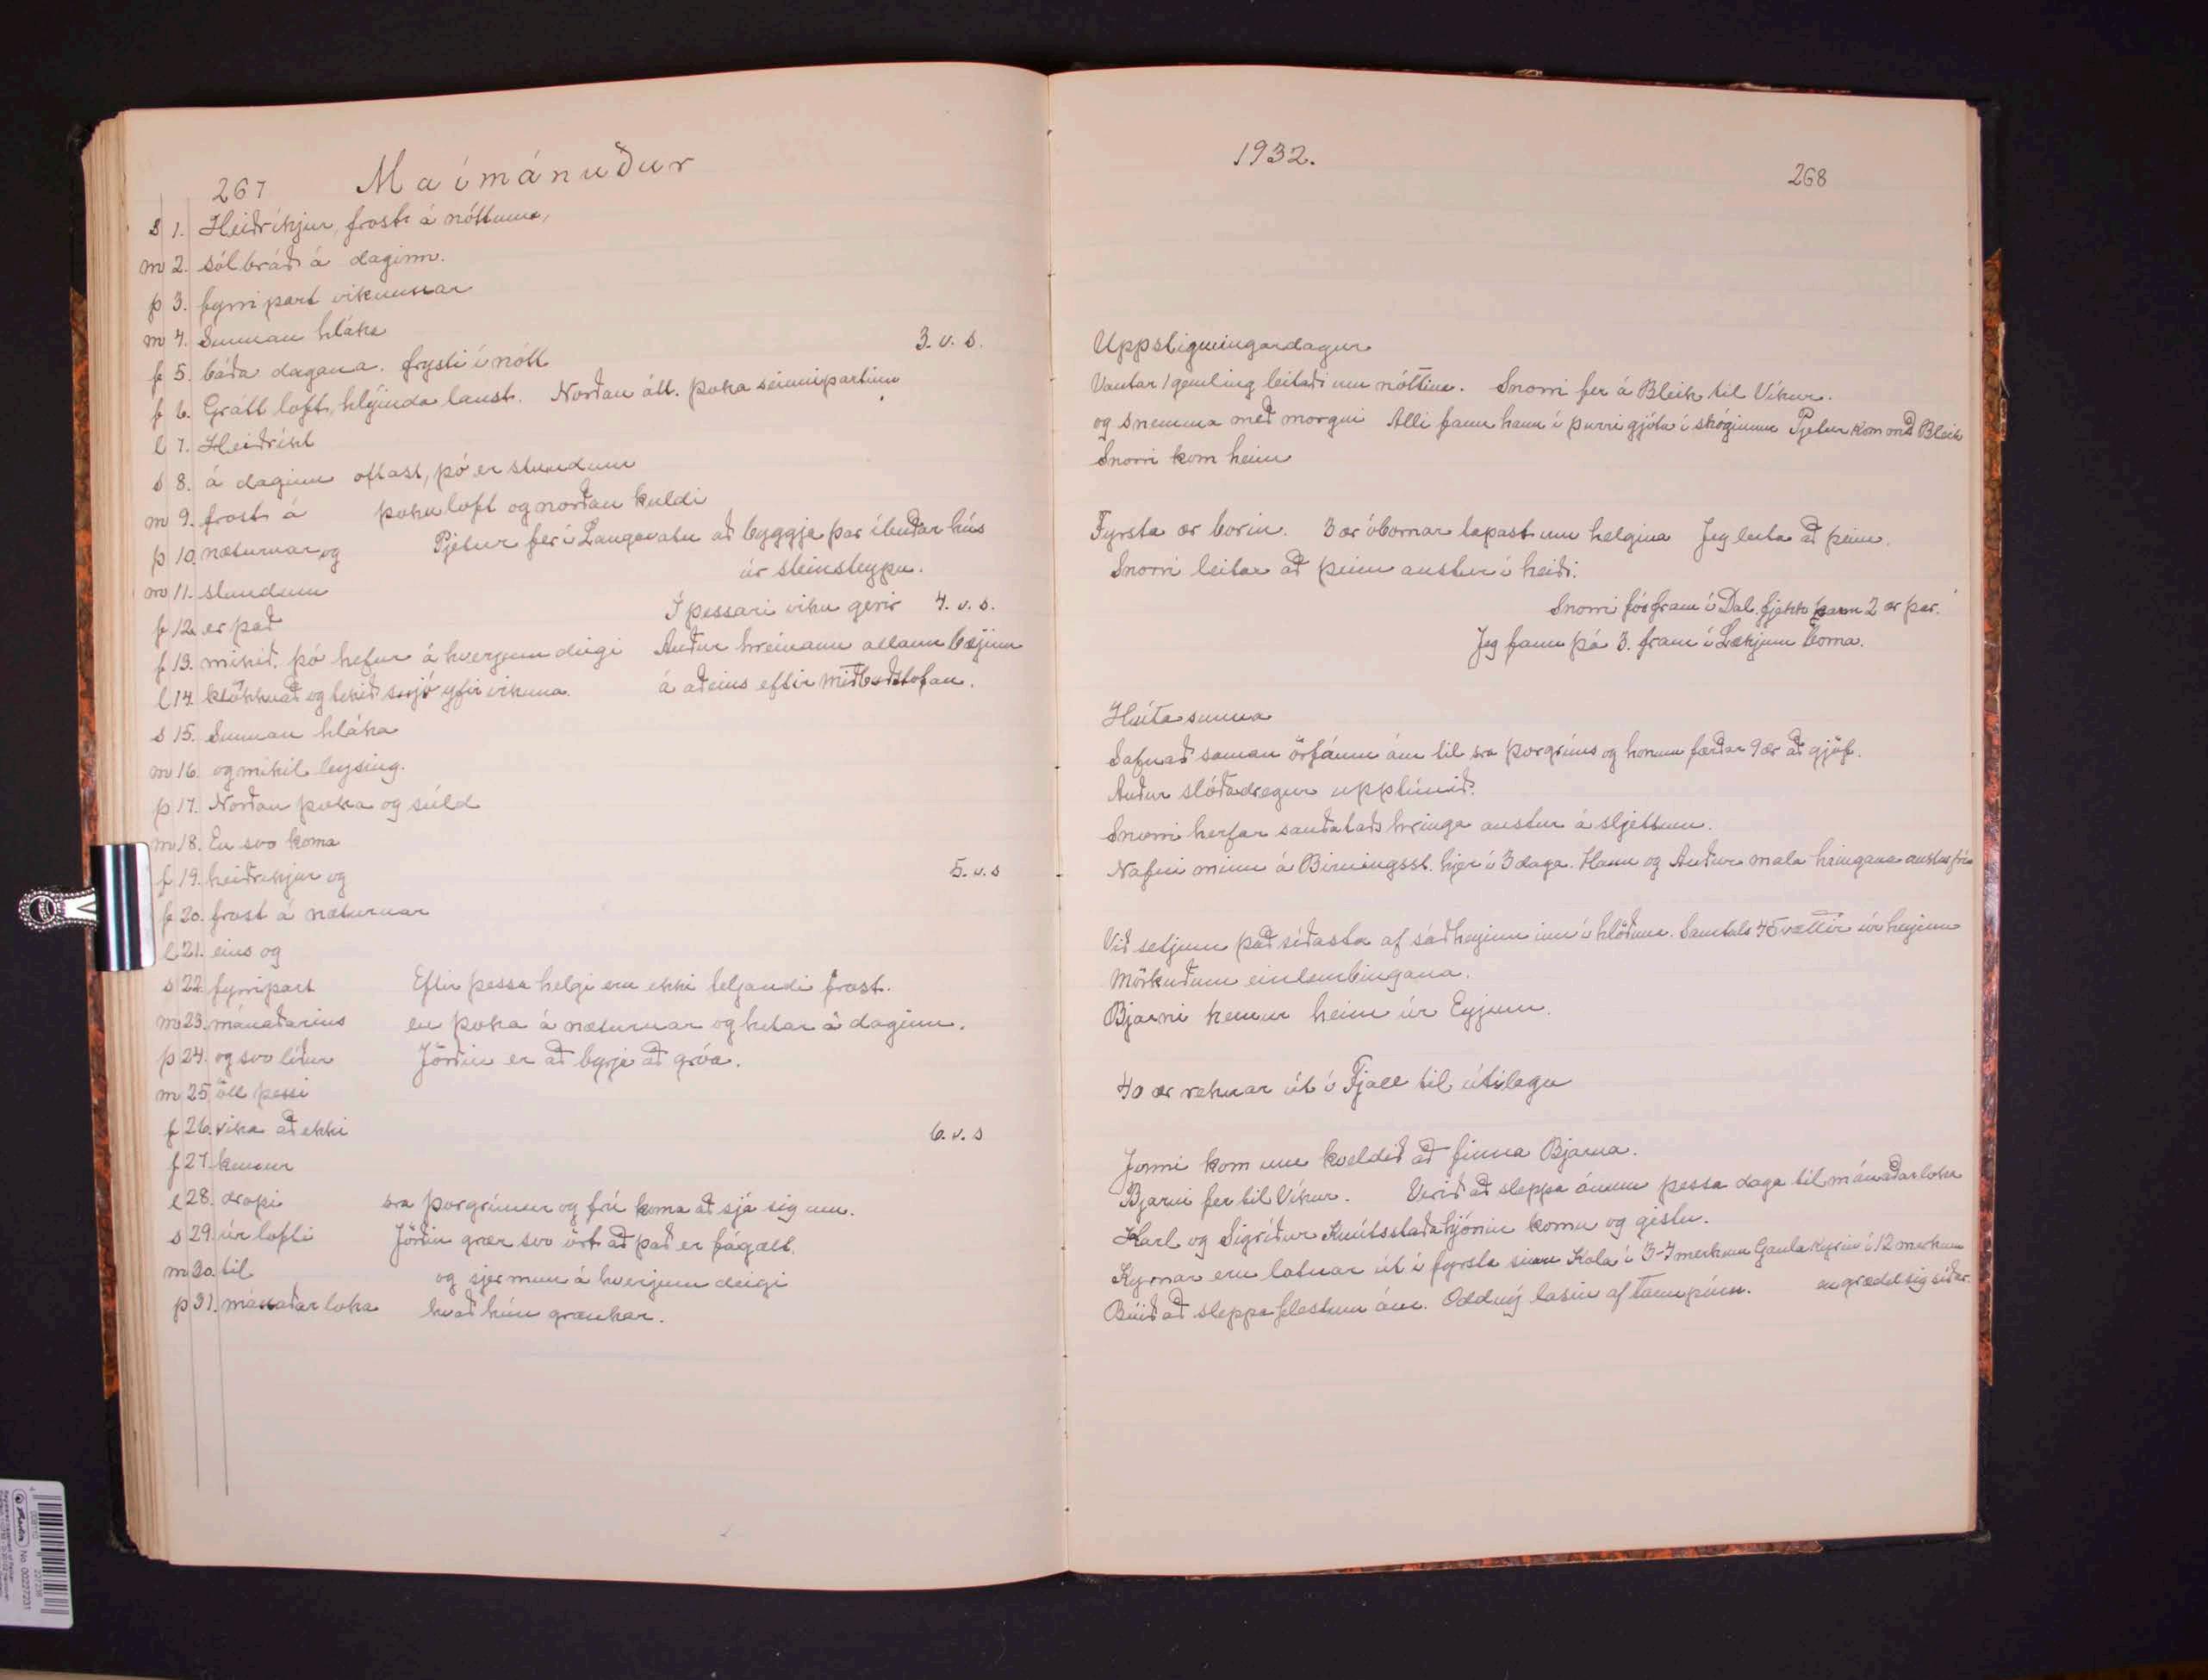 267 Maímánuður
s 1. Heiðríkjur, frost á nóttum,
m 2. sólbráð á daginn.
þ 3. fyrri part vikunnar
m 4. Sunnan hláka
f 5. báða dagana. frysti í nótt 3. v. s.
f 6. Grátt loft, hlýinda laust. Norðan átt. þoka seinnipartinn
l 7. Heiðríkt
s 8. á daginn oftast, þó er stundum
m 9. frost á þokuloft og norðan kuldi
þ 10. næturnar og Pjetur fer í Langavatn að byggja þar íbúðar hús
úr steinsteypu.
m 11. stundum
f 12. er það Í þessari viku gerir 4. v. s.
f 13. mikið. þó hefur á hverjum deigi Auður hreinann allann bæjinn
l 14. klökknað og tekið snjó yfir vikuna. á aðeins eftir miðbaðstofan.
s 15. Sunnan hláka
m 16. og mikil leysing.
þ 17. Norðan þoka og súld
m 18. En svo koma
f 19. heiðríkjur og 5. v. s
f 20. frost á næturnar
l 21. eins og
s 22. fyrripart Eftir þessa helgi eru ekki teljandi frost.
m 23. mánaðarins en þoka á næturnar og hitar á daginn.
þ 24. og svo líður Jörðin er að byrja að gróa.
m 25. öll þessi
f 26. vika að ekki 6. v. s
f 27. kemur
l 28. dropi sra Þorgrímur og frú koma að sjá sig um.
s 29. úr lofti Jörðin grær svo ört að það er fágætt.
m 30. til og sjer mun á hverjum deigi
þ 31. mánaðar loka hvað hún grænkar.
1932.
268
Uppstigningardagur
Vantar 1 gemling leitaði um nóttina. Snorri fer á Bleik til Víkur.
og snemma með morgni Alli fann hann í þurri gjótu í skóginum Pjetur kom með Bleik
Snorri kom heim
Fyrsta ær borin. 3 ær óbornar tapast um helgina Jeg leita að þeim.
Snorri leitar að þeim austur í heiði.
Snorri fór fram í Dal. fjekk þann 2 ær þar.
Jeg fann þá 3. fram í Lækjum borna.
Hvítasunna
Safnað saman örfáum ám til sra Þorgríms og honum færðar 9 ær að gjöf.
Auður slóðadregur upptúnið.
Snorri herfar sauðataðs hringa austur á sljettum.
Nafni minn á Birningsst. hjer í 3 daga. Hann og Auður mala hringana austur frá
Við setjum það síðasta af sáðheyinu inn í hlöðuna. Samtals 45 vættir úr heyinu
Mörkuðum einlembingana.
Bjarni kemur heim úr Eyjum.
40 ær reknar út í Fjall til útilegu
Jonni kom um kveldið að finna Bjarna.
Bjarni fer til Víkur. Verið að sleppa ánum þessa daga til mánaðarloka
Karl og Sigríður Knútsstaðahjónin komu og gistu.
Kyrnar eru látnar út í fyrsta sinn Kola í 3-4 merkum Gaula Kyrin í 12 merkum
Búið að sleppa flestum ám. Oddný lasin af tannpínu. en græddi sig síðar.